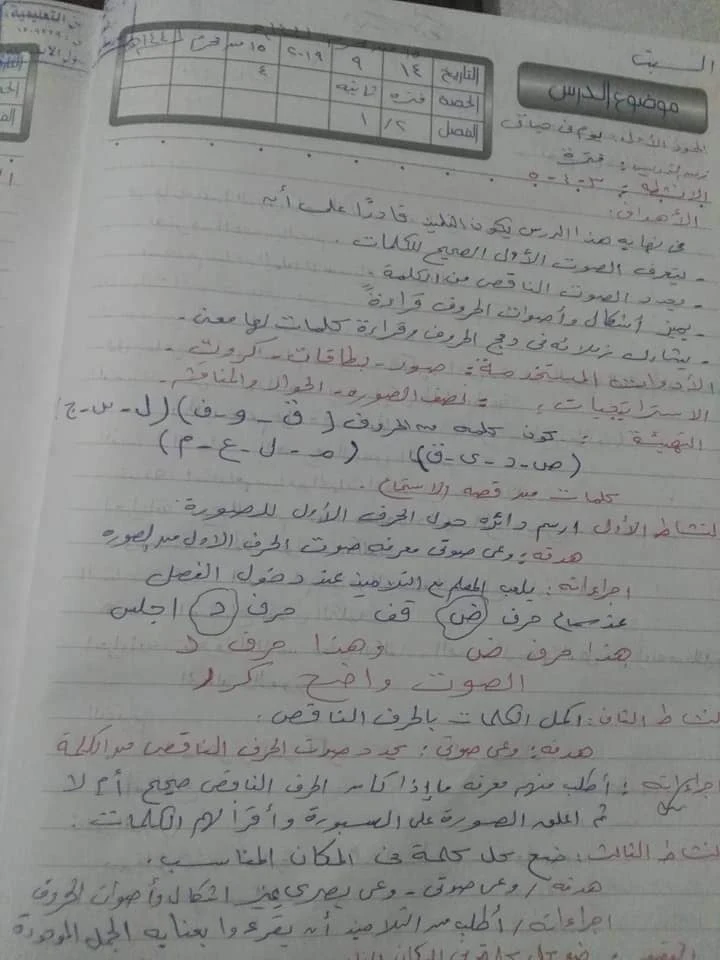 السبت
موضوع الدرس
التاريخ ١٤ ٩ ٢٠١٩ ١٥ محرم ١٤٤١
الحصة فترة ثانية ٤
الفصل ٢/ ١
المحور الأول: يوم في حياتي
فترة
الأنشطة: ٣-٤-٥
الأهداف:
في نهاية هذا الدرس يكون التلميذ قادرًا على أن
- يتعرف الصوت الأول الصحيح للكلمات.
- يحدد الصوت الناقص من الكلمة.
- يميز أشكال وأصوات الحروف قراءةً
- يشارك زملائه في دمج الحروف وقراءة كلمات لها معنى.
الأدوات المستخدمة: صور - بطاقات - كروت -
الاستراتيجيات: نصف الصورة - الحوار والمناقشة.
التهيئة: كون كلمة من الحروف (ق - و - ف) (ل - س - ج)
(ص - د - ى - ق) (م - ل - ع - م)
كلمات من قصة الاستماع.
النشاط الأول ارسم دائرة حول الحرف الأول للصورة
هدفه: وعى صوتى معرفة صوت الحرف الاول من الصورة
اجراءاته: يلعب المعلم مع التلاميذ عند دخول الفصل
عند سماع حرف ض قف حرف د اجلس
هذا حرف ض وهذا حرف د
الصوت واضح كرر
النشاط الثانى: اكمل الكلمات بالحرف الناقص.
هدفه: وعى صوتى: يحدد صوت الحرف الناقص من الكلمة
اجراءاته: أطلب منهم معرفة ما إذا كان الحرف الناقص صحيح أم لا
ثم اعلق الصورة على السبورة وأقرأ لهم الكلمات.
النشاط الثالث: ضع كل كلمة فى المكان المناسب.
هدفه / وعى صوتى - وعى بصرى يميز اشكال وأصوات الحروف
اجراءاته / أطلب من التلاميذ أن يقرءوا بعناية الجمل الموجودة